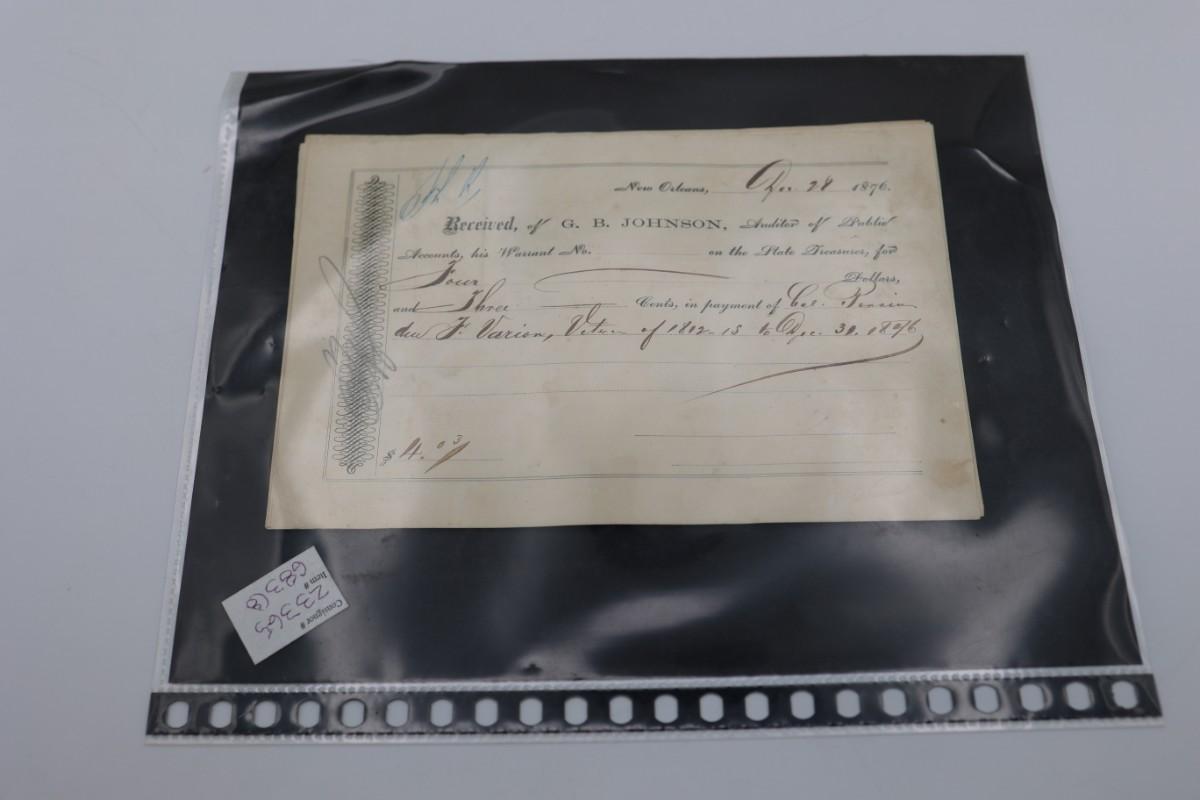 New Orleans, Dec 28 1876.
Received, of G. B. JOHNSON, Auditor of Public
Accounts, his Warrant No. on the State Treasurer, for
Four Dollars,
and Three Cents, in payment of Pension
due F. Varion, of 1812-15 to Dec. 30. 1876
$ 4.03
Consignor #
23365
Item #
68368